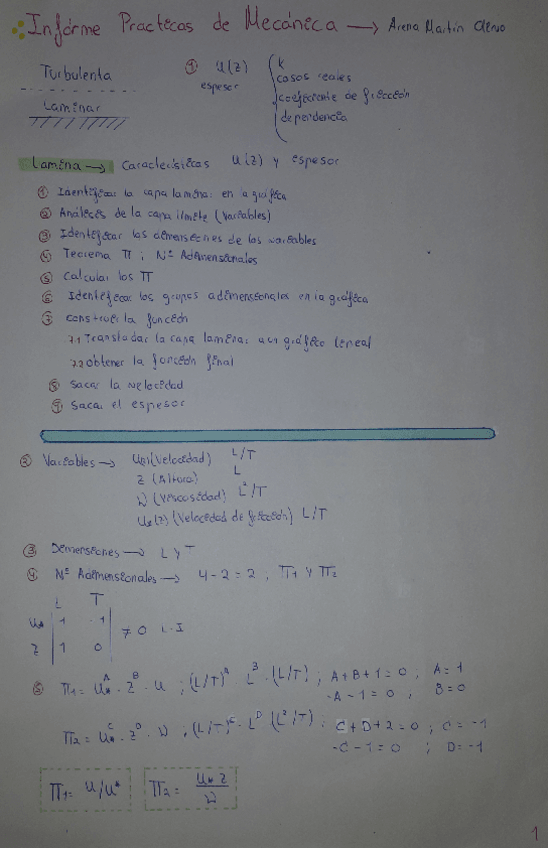 Infórme Practicas de Mecánica → Arena Martín
Turbulenta
Laminar
① u(z)
espesor
k
casos reales
coeficiente de fricción
dependencia
Lamina → Características u(z) y espesor
① Identificar la capa lamina: en la gráfica
② Análisis de la capa límite (Variables)
③ Identificar las dimensiones de las variables
④ Teorema Π ; Nº Adimensionales
⑤ Calcular los Π
⑥ Identificar los grupos adimensionales en la gráfica
⑦ construir la función
7.1 Transladar la capa lamina: a un gráfico lineal
7.2 obtener la función final
⑧ sacar la velocidad
⑨ Sacar el espesor
② Variables → (Velocidad) L/T
z (Altura) L
ν (Viscosidad) L²/T
(Velocidad de fricción) L/T
③ Dimensiones → L y T
④ Nº Adimensionales → 4-2=2 ; Π1 y Π2
L T
u* 1 -1
z 1 0
≠ 0 L.I
⑤ Π1 = u*^A · z^B · u ; (L/T)^A L^B · (L/T) ; A+B+1=0 ; A=1
-A-1=0 , B=0
Π2 = u*^C · z^D · ν , (L/T)^C · L^D (L²/T) ; C+D+2=0 ; C=-1
-C-1=0 ; D=-1
Π1 = u/u*
Π2 = u* z / ν
1